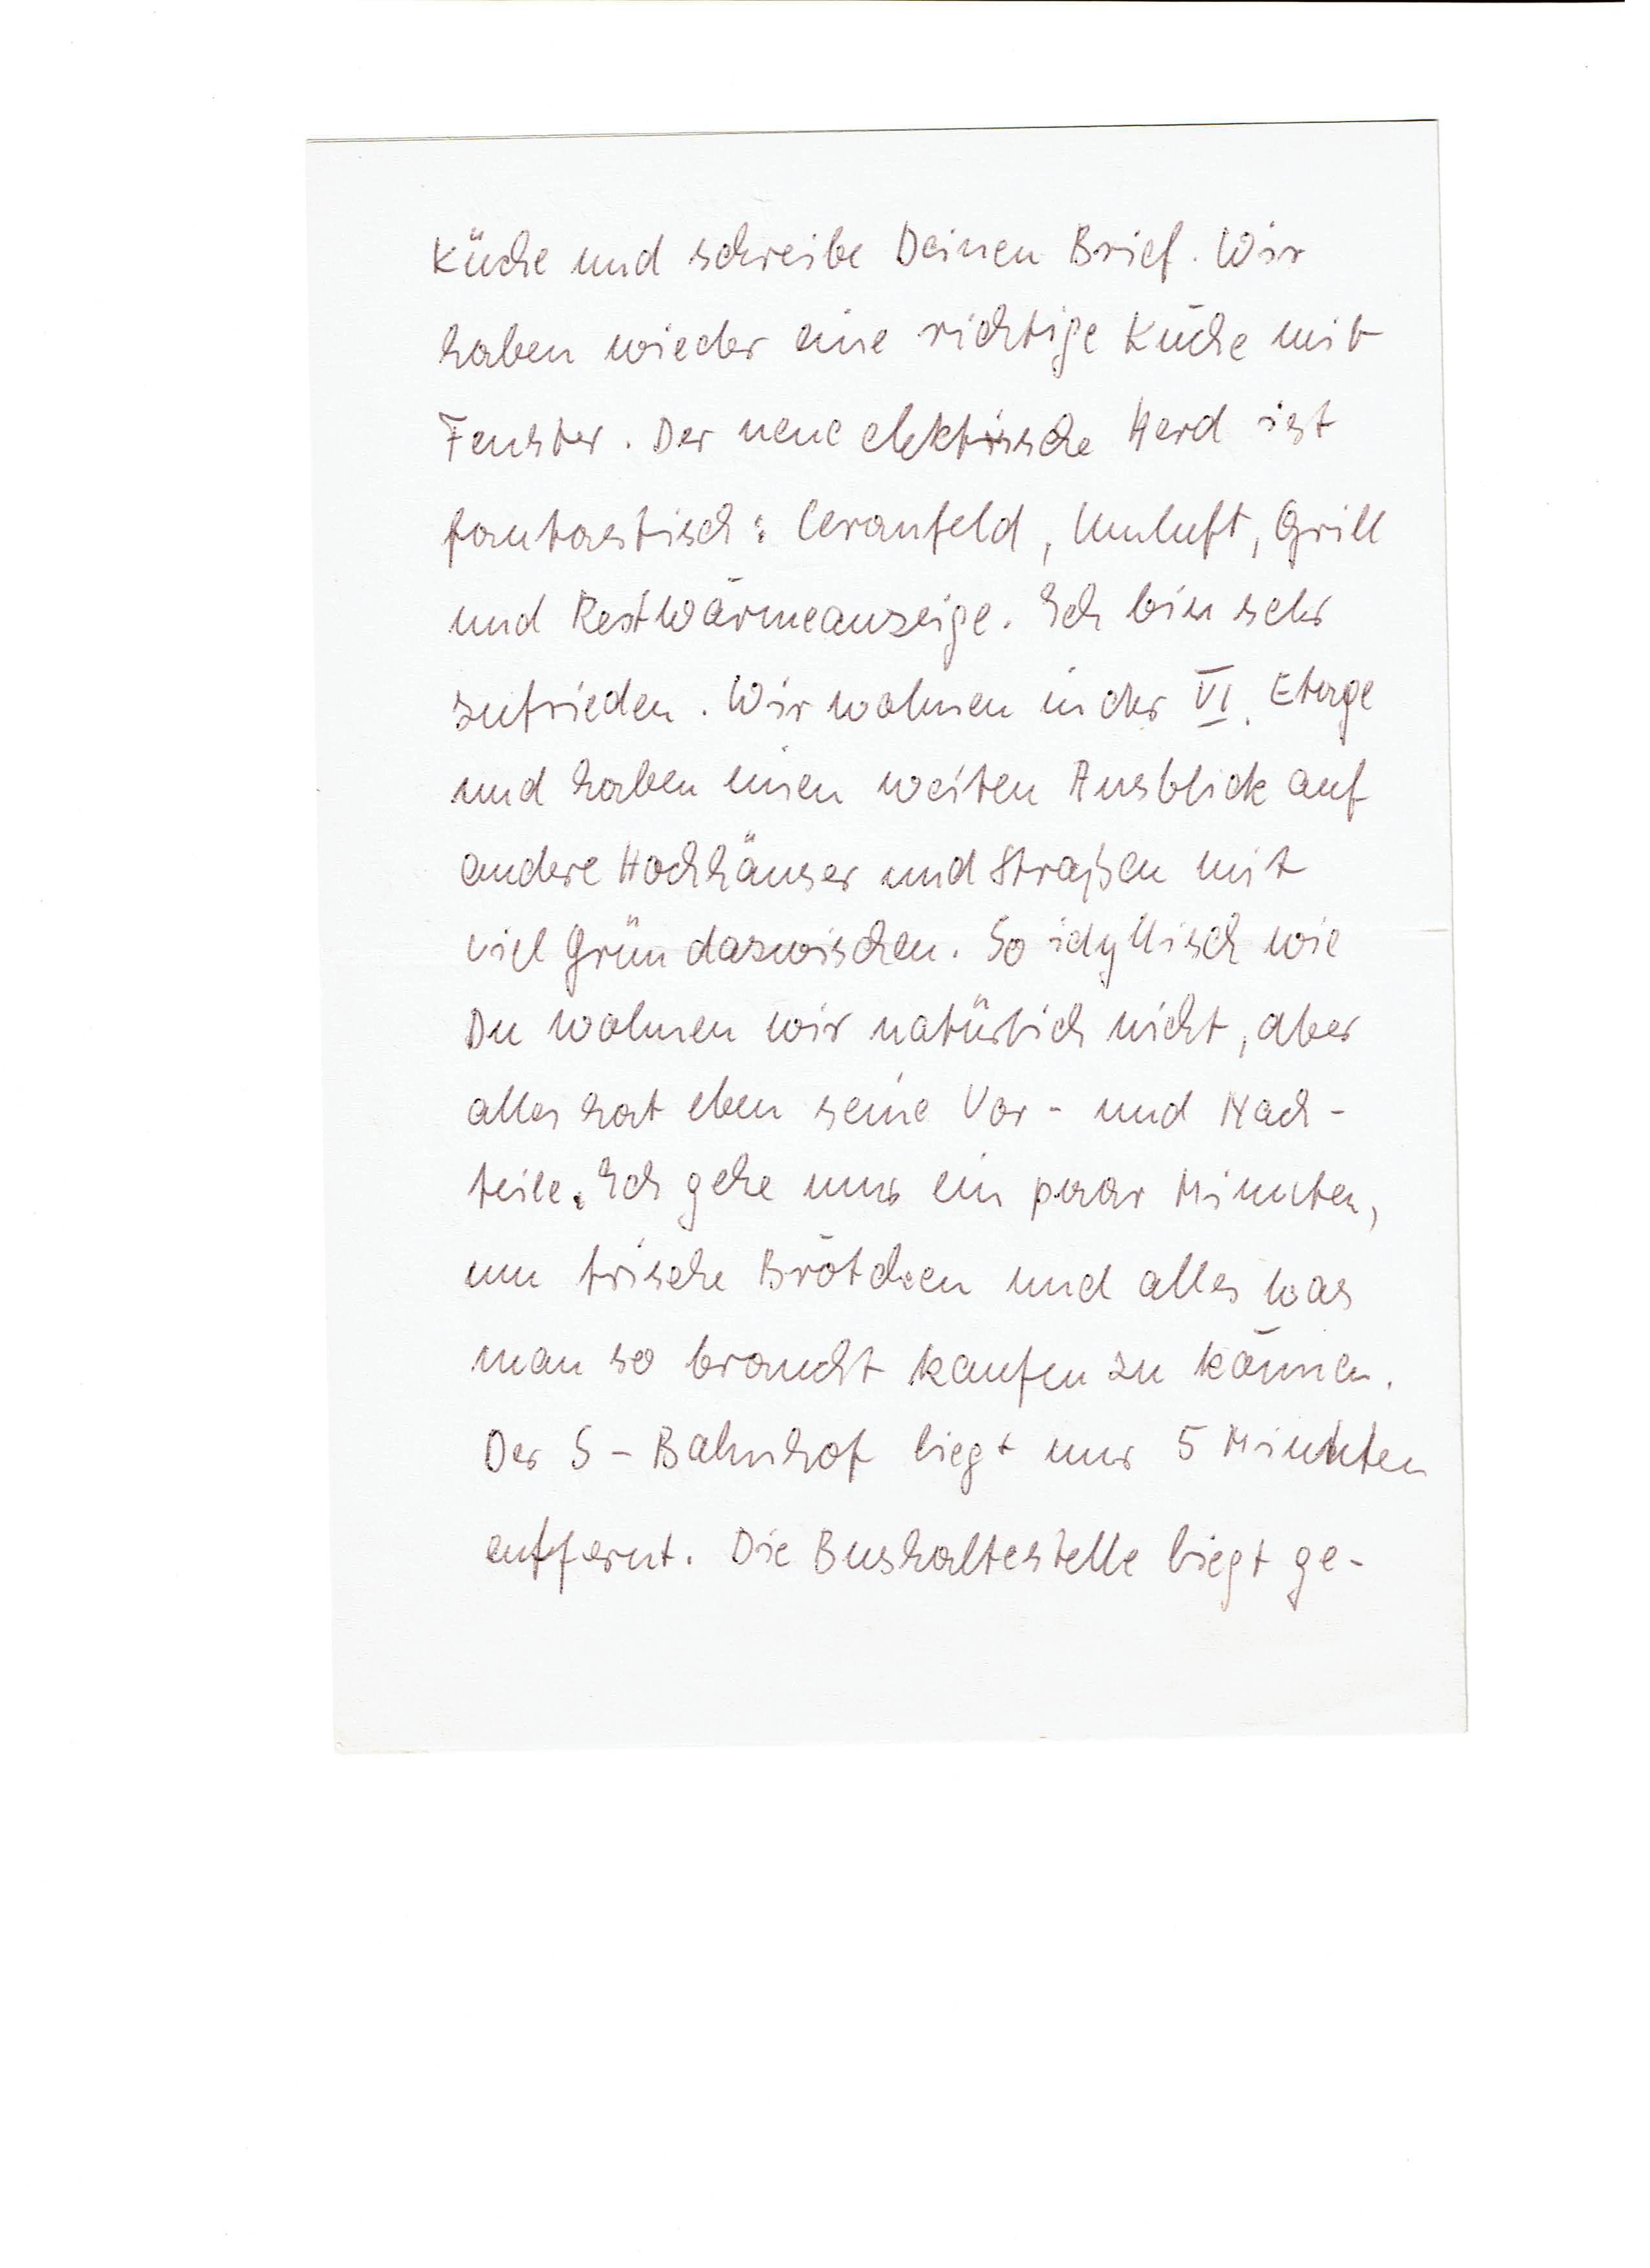 Küche und schreibe Deinen Brief. Wir
haben wieder eine richtige Küche mit
Fenster. Der neue elektrische Herd ist
fantastisch: Ceranfeld, Umluft, Grill
und Restwärmeanzeige. Ich bin sehr
zufrieden. Wir wohnen in der VI. Etage
und haben einen weiten Ausblick auf
andere Hochhäuser und Straßen mit
viel Grün dazwischen. So idyllisch wie
Du wohnen wir natürlich nicht, aber
alles hat eben seine Vor- und Nach-
teile. Ich gehe nur ein paar Minuten,
um frische Brötchen und alles was
man so braucht kaufen zu können.
Der S-Bahnhof liegt nur 5 Minuten
entfernt. Die Bushaltestelle liegt ge-